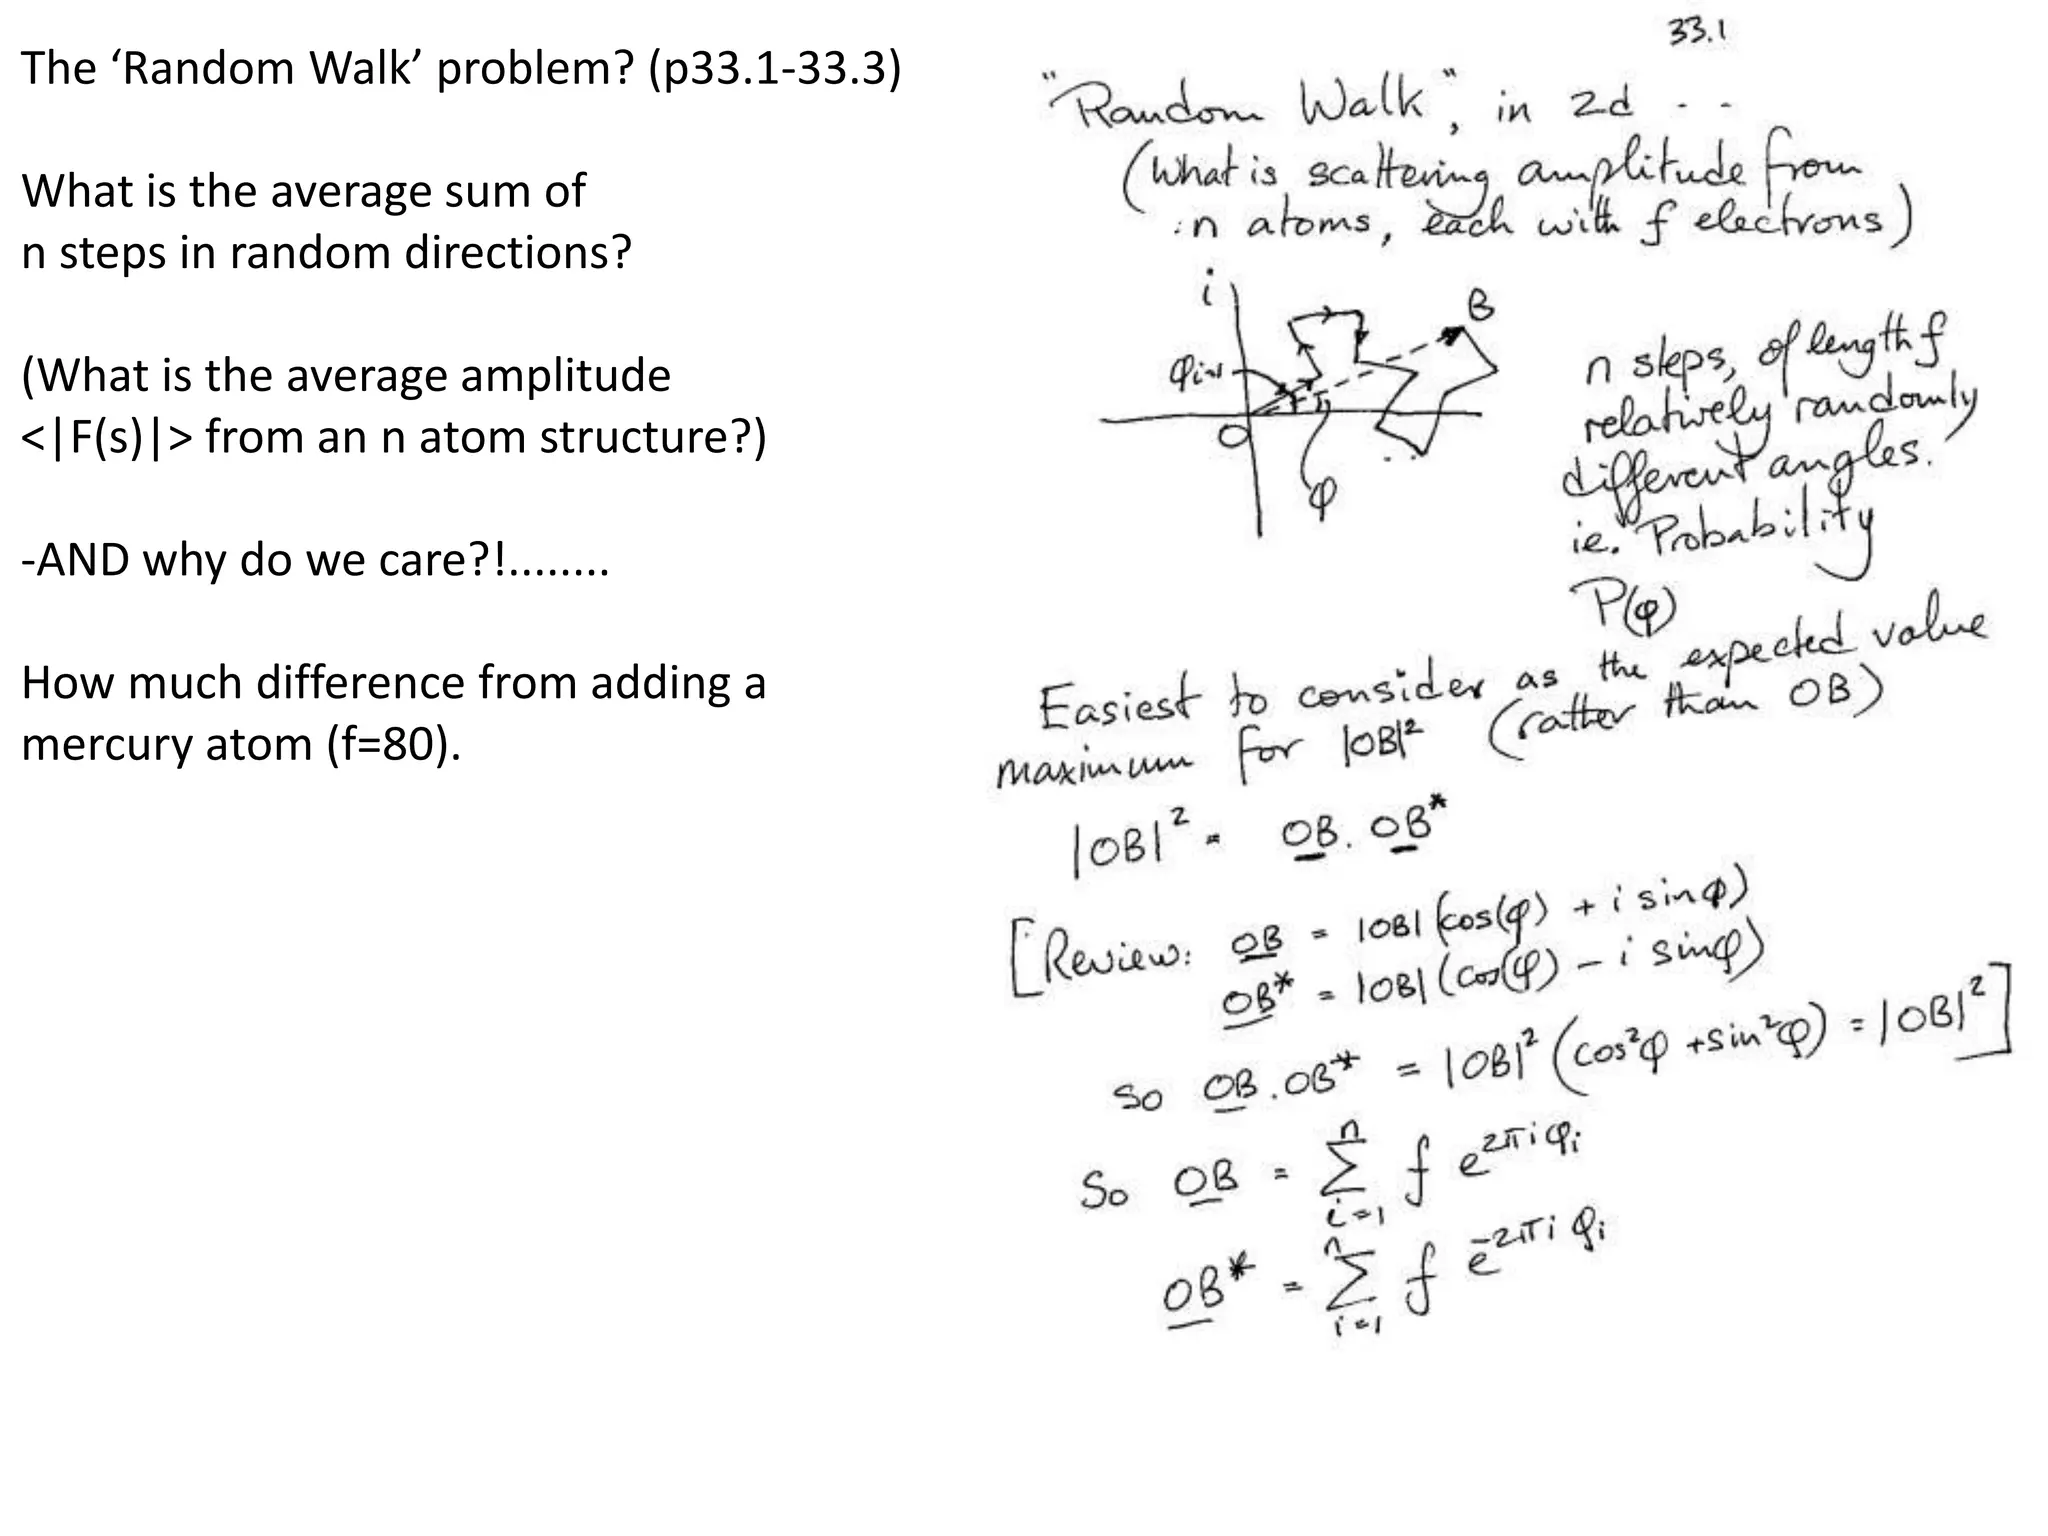 The ‘Random Walk’ problem? (p33.1-33.3)
What is the average sum of
n steps in random directions?
(What is the average amplitude
<|F(s)|> from an n atom structure?)
-AND why do we care?!........
How much difference from adding a
mercury atom (f=80).
33.1
"Random Walk", in 2d . . .
(What is scattering amplitude from
n atoms, each with f electrons)
i
B
φi=1
O
φ
n steps, of length f
relatively randomly
different angles.
ie. Probability
P(φ)
Easiest to consider as the expected value
maximum for |OB|² (rather than OB)
|OB|² = OB. OB*
[Review: OB = |OB| (cos(φ) + i sinφ)
OB* = |OB| (cos(φ) - i sinφ)
So OB.OB* = |OB|² (cos²φ + sin²φ) = |OB|²]
So OB = n∑i=1 f e^2πiφi
OB* = n∑i=1 f e^-2πiφi